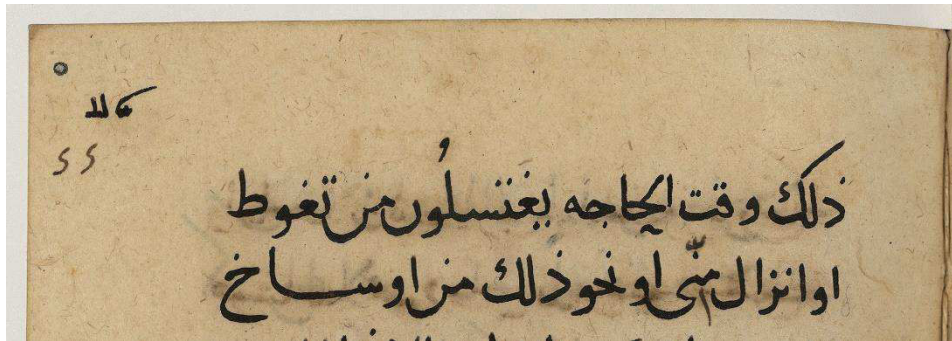 ذلك وقت الحاجه يغتسلون من تغوط
او انزال منّي او نحو ذلك من اوساخ